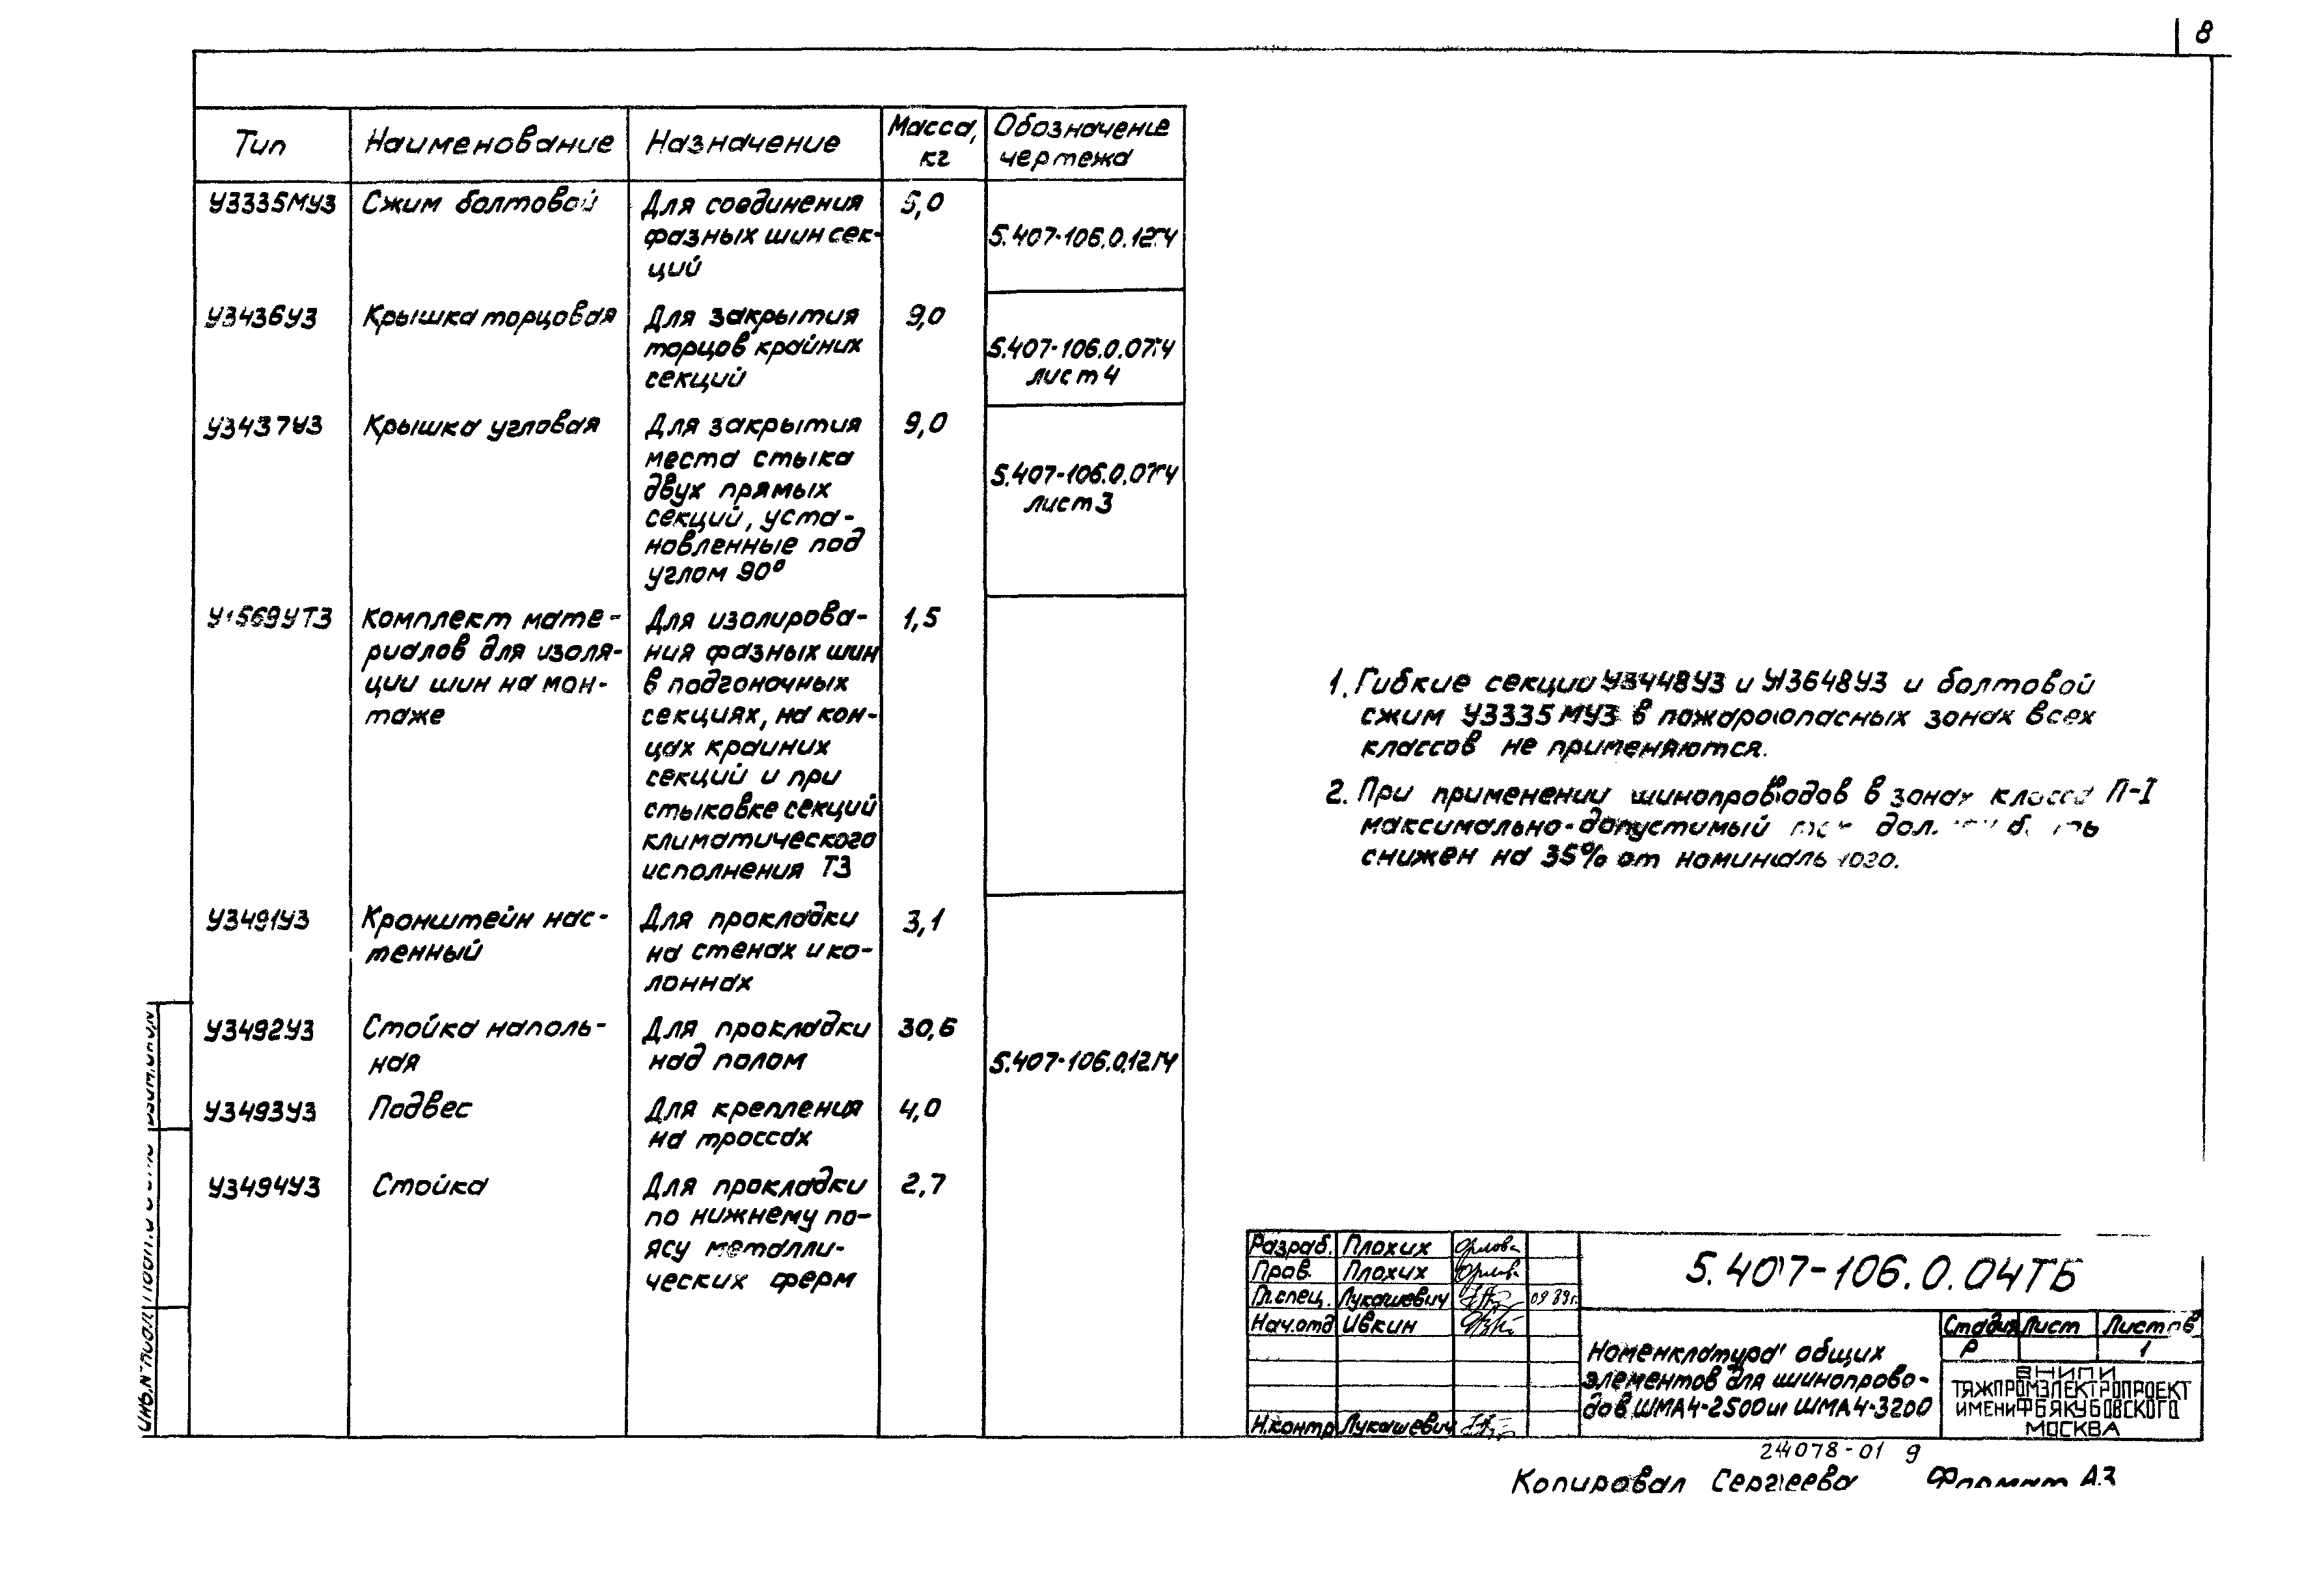 8
Тип
Наименование
Назначение
Масса,
кг
Обозначение
чертежа
У3335МУ3
Сжим болтовой
Для соединения
фазных шин сек-
ций
5,0
5.407-106.0.12ГЧ
У3436У3
Крышка торцовая
Для закрытия
торцов крайних
секций
9,0
5.407-106.0.07ГЧ
лист 4
У3437У3
Крышка угловая
Для закрытия
места стыка
двух прямых
секций, уста-
новленные под
углом 90°
9,0
5.407-106.0.07ГЧ
лист 3
У1569УТ3
Комплект мате-
риалов для изоля-
ции шин на мон-
таже
Для изолирова-
ния фазных шин
в подгоночных
секциях, на кон-
цах крайних
секций и при
стыковке секций
климатического
исполнения Т3
1,5
У3491У3
Кронштейн нас-
тенный
Для прокладки
на стенах и ко-
лоннах
3,1
У3492У3
Стойка наполь-
ная
Для прокладки
над полом
30,6
5.407-106.0.12ГЧ
У3493У3
Подвес
Для крепления
на троссах
4,0
У3494У3
Стойка
Для прокладки
по нижнему по-
ясу металли-
ческих ферм
2,7
1. Гибкие секции У3448У3 и У3648У3 и болтовой
сжим У3335МУ3 в пожароопасных зонах всех
классов не применяются.
2. При применении шинопроводов в зонах класса П-I
максимально-допустимый ток должен быть
снижен на 35% от номинального.
Разраб. Плохих Орлова
Пров. Плохих Орлова
Гл.спец. Лукашевич 09.89г.
Нач.отд Ивкин
Н.контр Лукашевич
5.407-106.0.04ТБ
Номенклатура общих
элементов для шинопрово-
дов ШМА4-2500 и ШМА4-3200
Стадия Лист Листов
Р 1
ВНИПИ
ТЯЖПРОМЭЛЕКТРОПРОЕКТ
ИМЕНИ Ф.Б.ЯКУБОВСКОГО
МОСКВА
24078-01 9
Копировал Сергеева Формат А3
Инв.N°подл.
Подп.и дата
Взам.инв.N